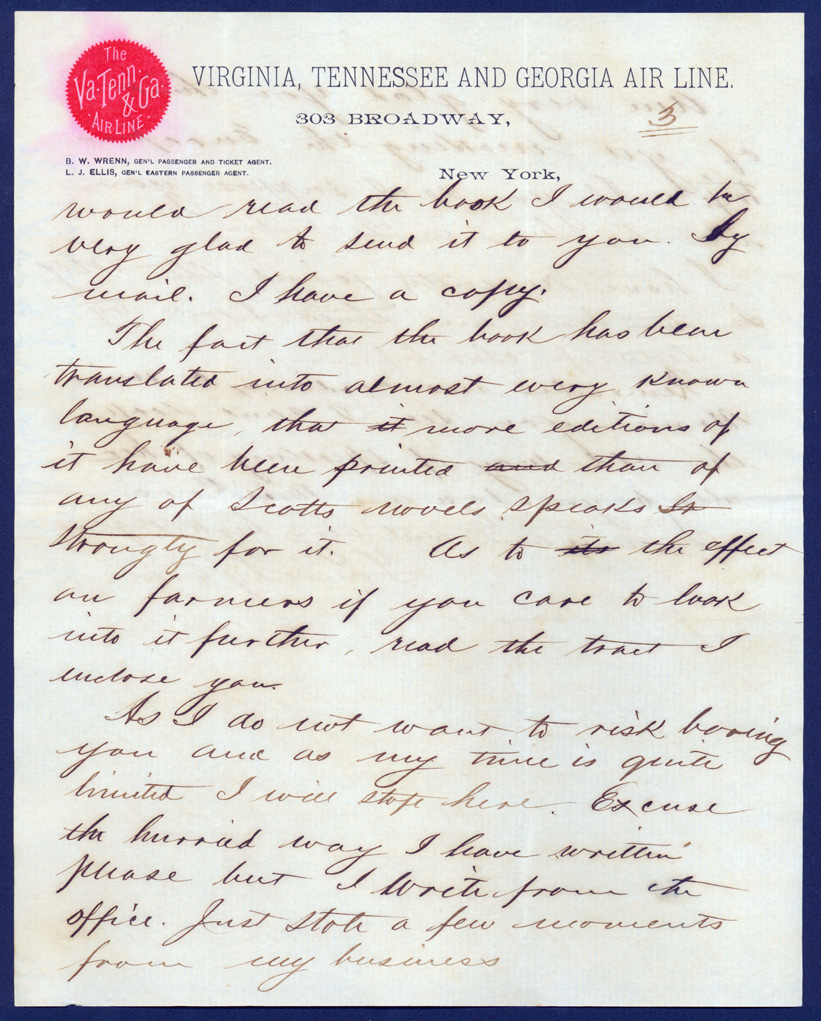 The
Va.Tenn.
& Ga
AIR LINE.
VIRGINIA, TENNESSEE AND GEORGIA AIR LINE.
303 BROADWAY,
3
B. W. WRENN, GEN'L PASSENGER AND TICKET AGENT.
L. J. ELLIS, GEN'L EASTERN PASSENGER AGENT.
New York,
would read the book I would be
very glad to send it to you. By
mail. I have a copy.
The fact that the book has been
translated into almost every known
language, that it more editions of
it have been printed and than of
any of Scotts novels speaks
strongly for it. As to its the effect
on farmers if you care to look
into it further, read the tract I
enclose you.
As I do not want to risk boring
you and as my time is quite
limited I will stop here. Excuse
the hurried way I have written
please but I write from the
office. Just stole a few moments
from my business